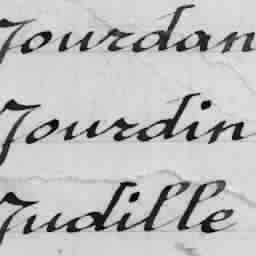 Jourdan
Jourdin
Judille